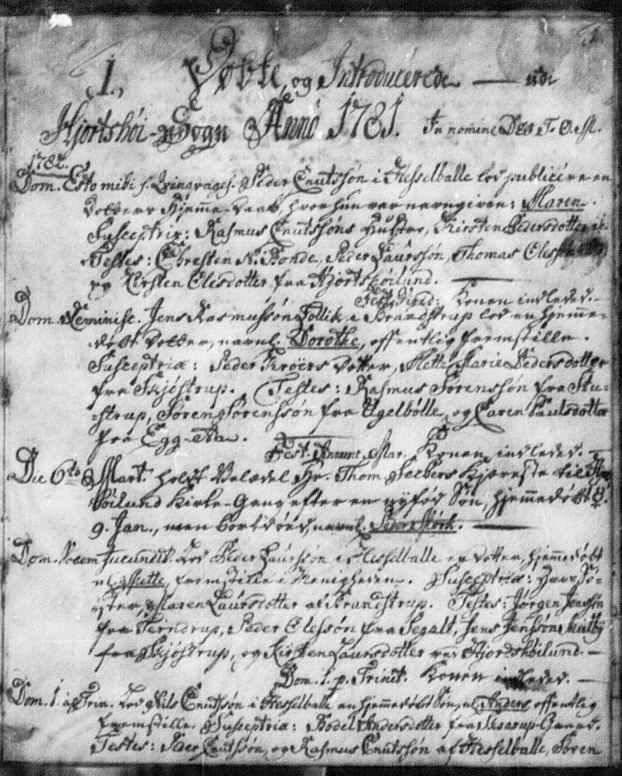 1. Døbte, og Introducerede — udi
Hjortshøi-Sogn Anno 1781. In nomine
1782.
Dom. Esto mihi Peder Cnutssøn i Hesselballe lod publicere en
Dotters Hjemme-Daab, hvor hun var navngiven: Maren.
Susceptrix: Rasmus Cnutssøns Hustru, Kirsten Pedersdotter
Testes: Chresten N. Bonde, Peder Laurssøn, Thomas
og Kirsten Olesdotter fra Hjortshøilund. —
Konen indledet. —
Dom. Reminisc. Jens Rasmussøn i Brandstrup lod en hjemme-
døbt Dotter, navnl. Dorothe, offentlig fremstille.
Susceptrix: Peder Krøers Dotter, Mette Marie Pedersdotter
fra Skjøstrup. Testes: Rasmus Sørenssøn fra
strup, Søren Sørenssøn fra Ugelbølle, og Karen Paulsdotter
fra Egg-Aa.
Fest. Annunt. Mar. Konen indledet. —
Die 6to Mart. holdt Velædel Hr. Thom. Kjæreste til
høilund Kirke-Gang efter en nyfød Søn, hjemmedøbt d.
9. Jan., men bortdød, navnl. Peder —
Dom. Jucundit. lod Peder Laurssøn i Hesselballe en Dotter, hjemmedøbt
nl. Mette, fremstille i Menigheden. Susceptrix: Hans Sø-
ster, Maren Laursdotter af Brandstrup. Testes: Jørgen Jenssøn
fra Terndrup, Peder Olessøn fra Segalt, Jens Jenssøn
fra Skjøstrup, og Kirsten Laursdotter ved Hjortshøilund. —
Dom. 1. p. Trinit. Konen indledet. —
Dom. 1. à Trin. lod Nils Cnutssøn i Hesselballe en hjemmedøbt Søn, nl. Anders, offentlig
fremstille. Susceptrix: Bodel Andersdotter fra
Testes: Peder Cnutssøn, og Rasmus Cnutssøn af Hesselballe, Søren